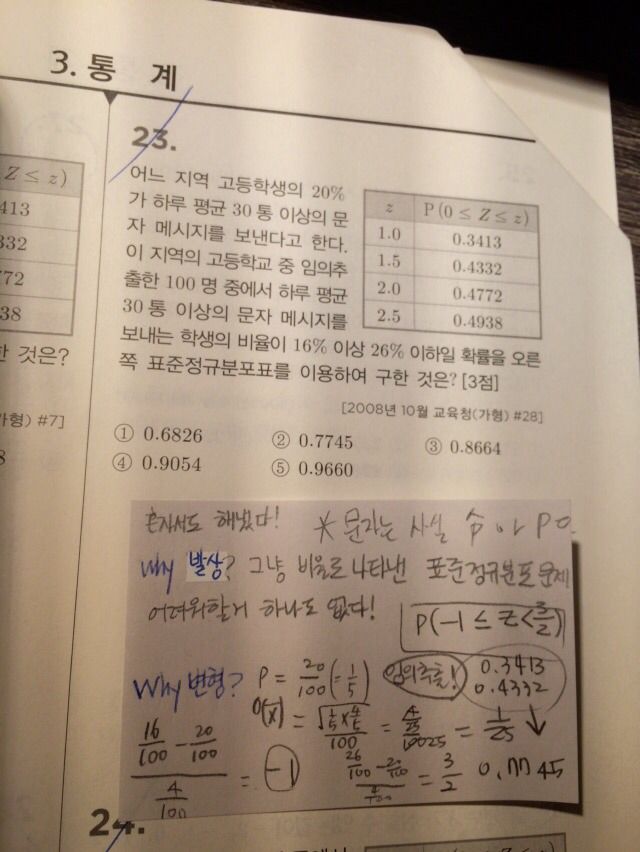 3. 통 계
Z ≤ z)
413
332
772
38
한 것은?
가형) #7]
8
23.
어느 지역 고등학생의 20%
가 하루 평균 30 통 이상의 문
자 메시지를 보낸다고 한다.
이 지역의 고등학교 중 임의추
출한 100 명 중에서 하루 평균
30 통 이상의 문자 메시지를
보내는 학생의 비율이 16% 이상 26% 이하일 확률을 오른
쪽 표준정규분포표를 이용하여 구한 것은? [3점]
z P(0 ≤ Z ≤ z)
1.0 0.3413
1.5 0.4332
2.0 0.4772
2.5 0.4938
[2008년 10월 교육청(가형) #28]
① 0.6826 ② 0.7745 ③ 0.8664
④ 0.9054 ⑤ 0.9660
혼자서도 해냈다! * 문자는 사실 p̂ or p
Why 발상? 그냥 비율로 나타낸 표준정규분포 문제
어려워할거 하나도 없다!
P(-1 ≤ Z < 3/2)
Why 변형? P = 20/100 (= 1/5) 임의추출! 0.3413
0.4332
= 1/25
16/100 - 20/100
4/100
= -1
26/100 - 20/100
4/100
= 3/2 0.7745
24.